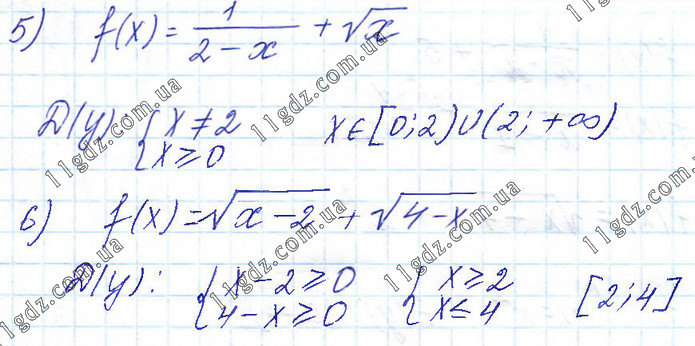 5) f(x) = 1/(2-x) + √x
D(y): { x ≠ 2 x ≥ 0 x ∈ [0; 2) ∪ (2; +∞)
6) f(x) = √(x-2) + √(4-x)
D(y): { x-2 ≥ 0 4-x ≥ 0 { x ≥ 2 x ≤ 4 [2; 4]
11gdz.com.ua
11gdz.com.ua
11gdz.com.ua
11gdz.com.ua
11gdz.com.ua
11gdz.com.ua
11gdz.com.ua
11gdz.com.ua